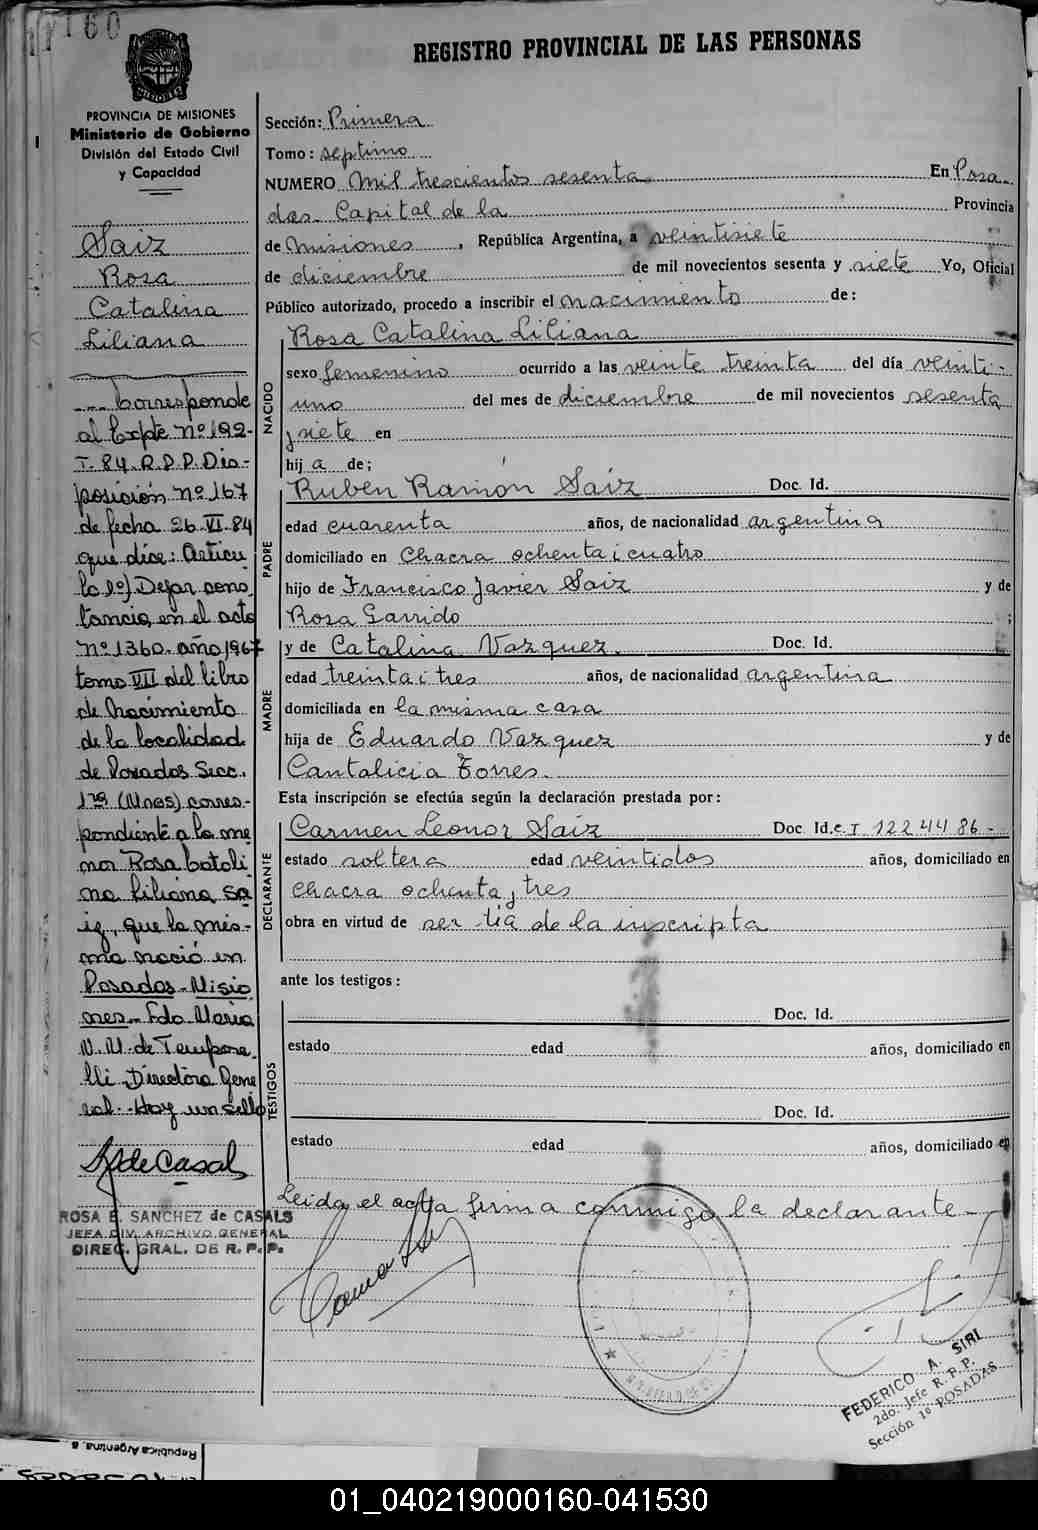 160
REGISTRO PROVINCIAL DE LAS PERSONAS
PROVINCIA DE MISIONES
Ministerio de Gobierno
División del Estado Civil
y Capacidad
Saiz
Rosa
Catalina
Liliana
Corresponde
al Expte Nº 192-
T. 84. R.P.P. Dis-
posición nº 167
de fecha 26.VI.84
que dice: Artícu
lo 1º) Dejar cons
tancia en el acta
nº 1360. año 1967
tomo VII del libro
de Nacimiento
de la localidad
de Posadas Secc.
1ra (Mnes) corres-
pondiente a la me
nor Rosa Catali
na Liliana Sa
iz, que la mis-
ma nació en
Posadas - Misio
nes. Fdo. Maria
N. M. de Tempore
lli Directora Gene
ral. Hay un sello
ROSA E. SANCHEZ de CASALS
JEFA DIV. ARCHIVO GENERAL
DIREC. GRAL. DE R. P. P.
Sección: Primera
Tomo: septimo
NUMERO Mil trescientos sesenta En Posa
das Capital de la Provincia
de Misiones, República Argentina, a veintisiete
de diciembre de mil novecientos sesenta y siete Yo, Oficial
Público autorizado, procedo a inscribir el nacimiento de:
NACIDO
Rosa Catalina Liliana
sexo femenino ocurrido a las veinte treinta del día veinti-
uno del mes de diciembre de mil novecientos sesenta
y siete en
hij a de;
PADRE
Ruben Ramón Saiz Doc. Id.
edad cuarenta años, de nacionalidad argentina
domiciliado en Chacra ochenta i cuatro
hijo de Francisco Javier Saiz y de
Rosa Garrido ;
MADRE
y de Catalina Vazquez. Doc. Id.
edad treinta i tres años, de nacionalidad argentina
domiciliada en la misma casa
hija de Eduardo Vazquez y de
Cantalicia Torres.
Esta inscripción se efectúa según la declaración prestada por:
DECLARANTE
Carmen Leonor Saiz Doc Id. C. I 122 44 86-
estado soltera edad veintidos años, domiciliado en
chacra ochenta y tres
obra en virtud de ser tia de la inscripta
ante los testigos:
TESTIGOS
Doc. Id.
estado edad años, domiciliado en
Doc. Id.
estado edad años, domiciliado en
Leida el acta firma conmigo la declarante.-
FEDERICO A. SIRI
2do. Jefe R. P. P.
Sección 1º POSADAS
República Argentina, a
01_040219000160-041530